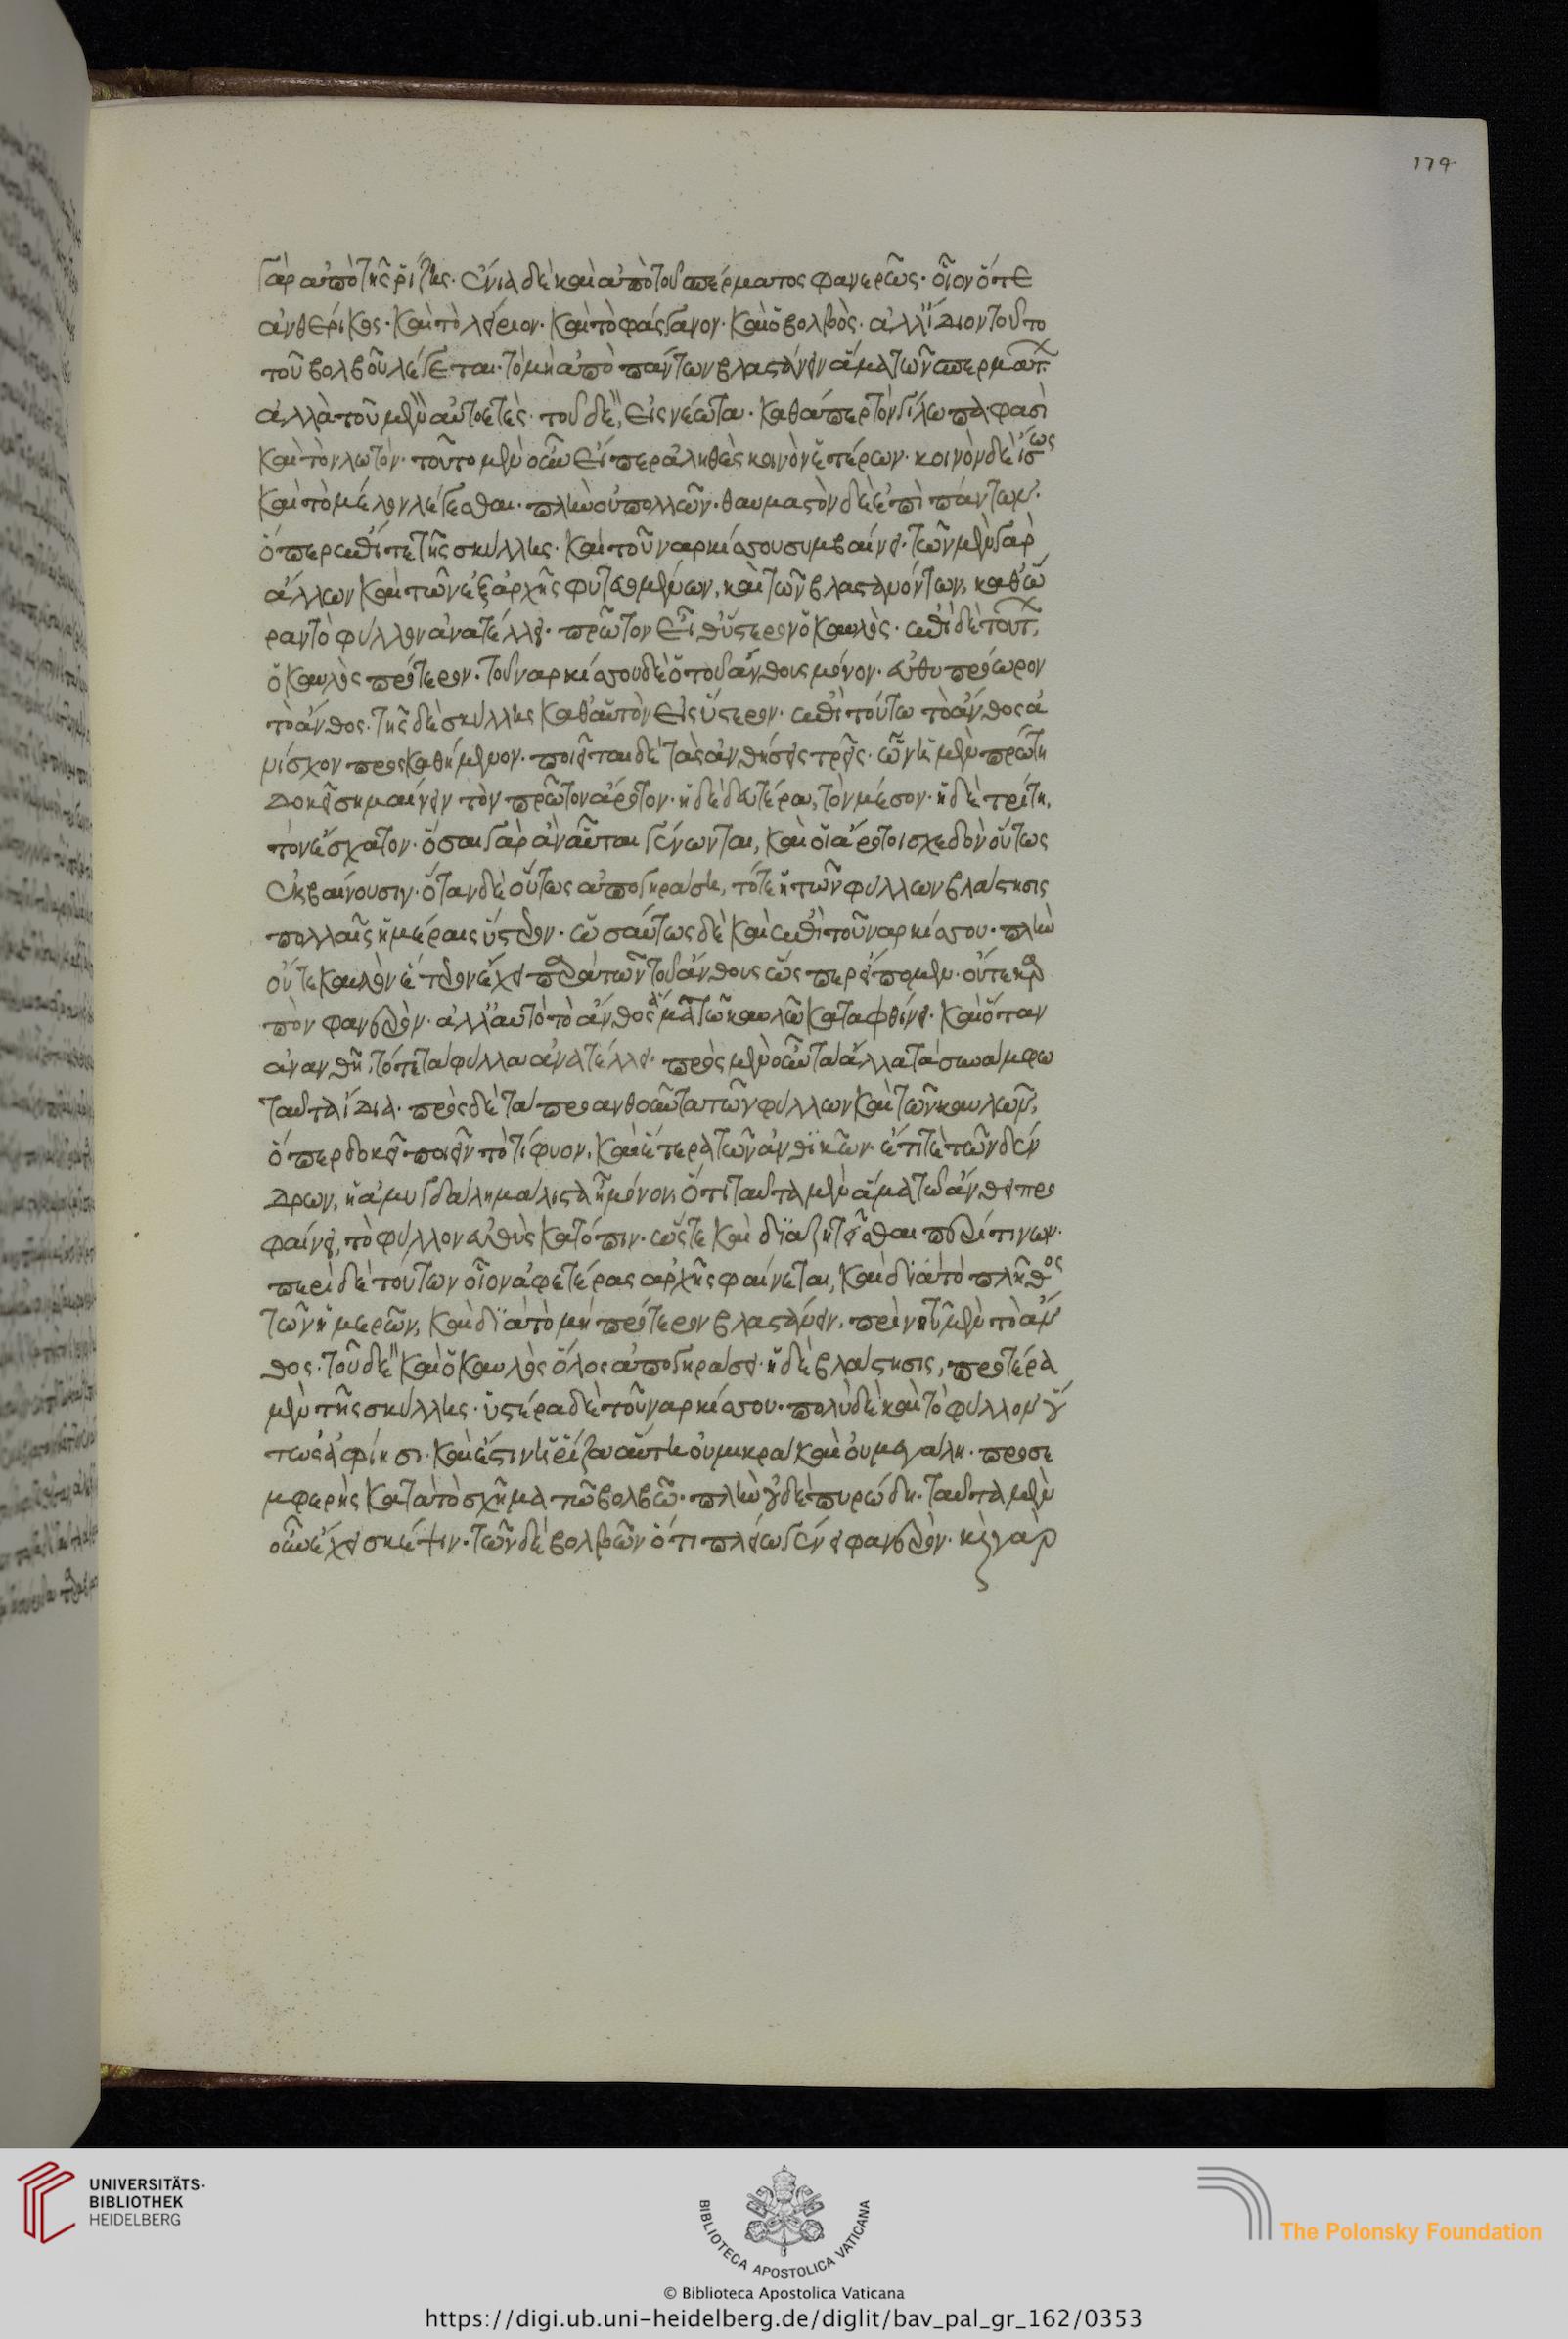 179
γὰρ ἀπὸ τῆς ῥίζης. ἔνια δὲ καὶ ἀπὸ τοῦ σπέρματος φανερῶς. οἷον ὅ τε
ἀνθέρικος. καὶ τὸ λείριον. καὶ τὸ φάσγανον. καὶ ὁ βολβὸς. ἀλλ' ἴδιον τοῦτο
τοῦ βολβοῦ λέγεται. τὸ μὴ ἀπὸ πάντων βλαστάνειν ἅμα τῶν σπερμάτ
ἀλλὰ τοῦ μὲν αὐτοετὲς. τοῦ δὲ, εἰς νέωτα. καθάπερ τὸν αἰγίλωπα φασὶ
καὶ τὸν λωτόν. τοῦτο μὲν οὖν εἴπερ ἀληθὲς κοινὸν ἑτέρων. κοινὸν δὲ ἴσως
καὶ τὸ μέλον λέγεσθαι. πλὴν οὐ πολλῶν. θαυμαστὸν δὲ ἐπὶ πάντων.
ὅπερ ἐπί τε τῆς σκίλλης. καὶ τοῦ ναρκίσσου συμβαίνει. τῶν μὲν γὰρ
ἄλλων καὶ τῶν ἐξ ἀρχῆς φυτευομένων, καὶ τῶν βλαστανόντων, καθ' ὥ
ραν τὸ φύλλον ἀνατέλλει. πρῶτον εἶθ' ὕστερον ὁ καυλὸς. ἐπὶ δὲ τούτ,
ὁ καυλὸς πρότερον. τοῦ ναρκίσσου δὲ ὁ τοῦ ἄνθους μόνον. εὐθὺ προωρον
τὸ ἄνθος. τῆς δὲ σκίλλης καθ' αὑτὸν εἰς ὕστερον. ἐπὶ τούτω τὸ ἄνθος ἀ
μίσχον προσκαθήμενον. ποιεῖται δὲ τὰς ἀνθήσεις τρεῖς. ὧν ἡ μὲν πρώτη
δοκεῖ σημαίνειν τὸν πρῶτον ἄροτον. ἡ δὲ δευτέρα, τὸν μέσον. ἡ δὲ τρίτη,
τὸν ἔσχατον. ὅσαι γὰρ ἂν αὗται γένωνται, καὶ οἱ ἄροτοι σχεδὸν οὕτως
ἐκβαίνουσιν. ὅταν δὲ οὗτος ἀπογηράσῃ, τότε ἡ τῶν φύλλων βλάστησις
πολλαῖς ἡμέραις ὕστερον. ὡσαύτως δὲ καὶ ἐπὶ τοῦ ναρκίσσου. πλὴν
οὔτε καυλὸν ἕτερον ἔχει παρὰ τὸν τοῦ ἄνθους ὥσπερ εἴπομεν. οὔτε καρ
πὸν φανερόν. ἀλλ' αὐτὸ τὸ ἄνθος ἅμα τῶ καυλῶ καταφθίνει. καὶ ὅταν
ἀνανθῇ, τότε τὰ φύλλα ἀνατέλλει. πρὸς μὲν οὖν τὰ ἄλλα τὰ ἄμφω
ταῦτα ἴδια. πρὸς δὲ τὰ προανθοῦντα τῶν φύλλων καὶ τῶν καυλῶν,
ὅπερ δοκεῖ ποιεῖν τὸ τίφυον, καὶ ἕτερα τῶν ἀνθικῶν. ἔτι τε τῶν δέν
δρων, ἡ ἀμυγδαλῆ μάλιστα ἢ μόνον, ὅτι ταῦτα μὲν ἅμα τῶ ἄνθει προ
φαίνει, τὸ φύλλον εὐθὺς κατόπιν. ὥστε καὶ διαζητεῖσθαι περί τινων.
περὶ δὲ τούτων οἷον ἀφ' ἑτέρας ἀρχῆς φαίνεται, καὶ διὰ τὸ πλῆθος
τῶν ἡμερῶν, καὶ διὰ τὸ μὴ πρότερον βλαστάνειν, πρὶν ἢ τοῦ μὲν τὸ ἄν
θος. τοῦ δὲ καὶ ὁ καυλὸς ὅλος ἀπογηράσει. ἡ δὲ βλάστησις, προτέρα
μὲν τῆς σκίλλης. ὑστέρα δὲ τοῦ ναρκίσσου. πολὺ δὲ καὶ τὸ φύλλον οὕ
τως ἀφίησι. καὶ ἔστιν ἡ ῥίζα αὕτη οὐ μικρὰ καὶ οὐ μεγάλη. προσε
μφερὴς κατὰ τὸ σχῆμα τῶ βολβῶ. πλὴν οὐ δὲ πυρώδη. ταῦτα μὲν
οὖν ἔχει σκέψιν. τῶν δὲ βολβῶν ὅτι πλείω γένει φανερὸν. καὶ γὰρ
UNIVERSITÄTS-
BIBLIOTHEK
HEIDELBERG
BIBLIOTECA APOSTOLICA VATICANA
The Polonsky Foundation
© Biblioteca Apostolica Vaticana
https://digi.ub.uni-heidelberg.de/diglit/bav_pal_gr_162/0353